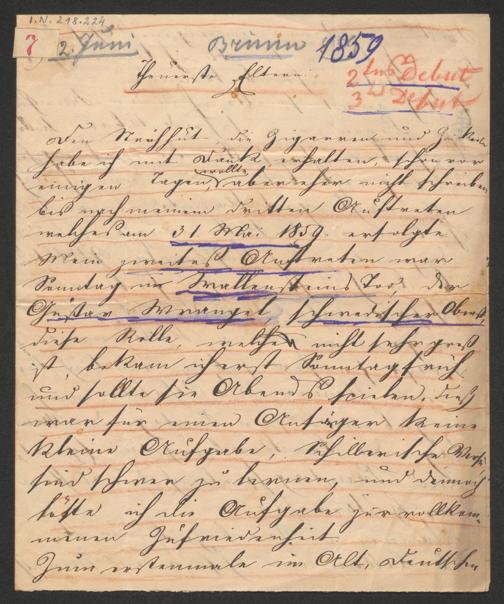 I.N. 218.224
7 2. Juni Brünn 1859
Theuerste Eltern
2tes Debut
3tes Debut
Den Strohhut die Zigarren und
habe ich mit Dank erhalten, schon vor
einigen Tagen wollte aber eher nicht schreiben
bis nach meinem dritten Auftreten
welches am 31 Mai 1859. erfolgte
Mein zweites Auftreten war
Sonntag in Wallensteins Tod der
Gustav Wrangel, schwedischer Oberst,
diese Rolle, welche nicht sehr groß
ist, bekam ich erst Sonntag früh
und sollte sie Abends spielen, dieß
war für einen Anfänger keine
kleine Aufgabe, Schillerische Verse
sind schwer zu lernen, und dennoch
löste ich die Aufgabe zur vollkom-
menen Zufriedenheit.
Zum erstenmale im Alt, Deutschen